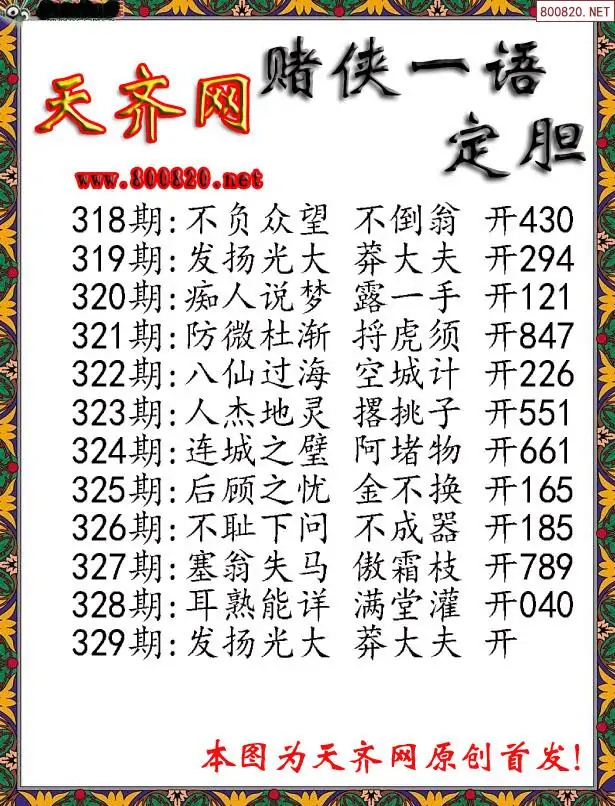 800820.NET
天齐网
赌侠一语
定胆
www.800820.net
318期:不负众望 不倒翁 开430
319期:发扬光大 莽大夫 开294
320期:痴人说梦 露一手 开121
321期:防微杜渐 捋虎须 开847
322期:八仙过海 空城计 开226
323期:人杰地灵 撂挑子 开551
324期:连城之璧 阿堵物 开661
325期:后顾之忧 金不换 开165
326期:不耻下问 不成器 开185
327期:塞翁失马 傲霜枝 开789
328期:耳熟能详 满堂灌 开040
329期:发扬光大 莽大夫 开
本图为天齐网原创首发!